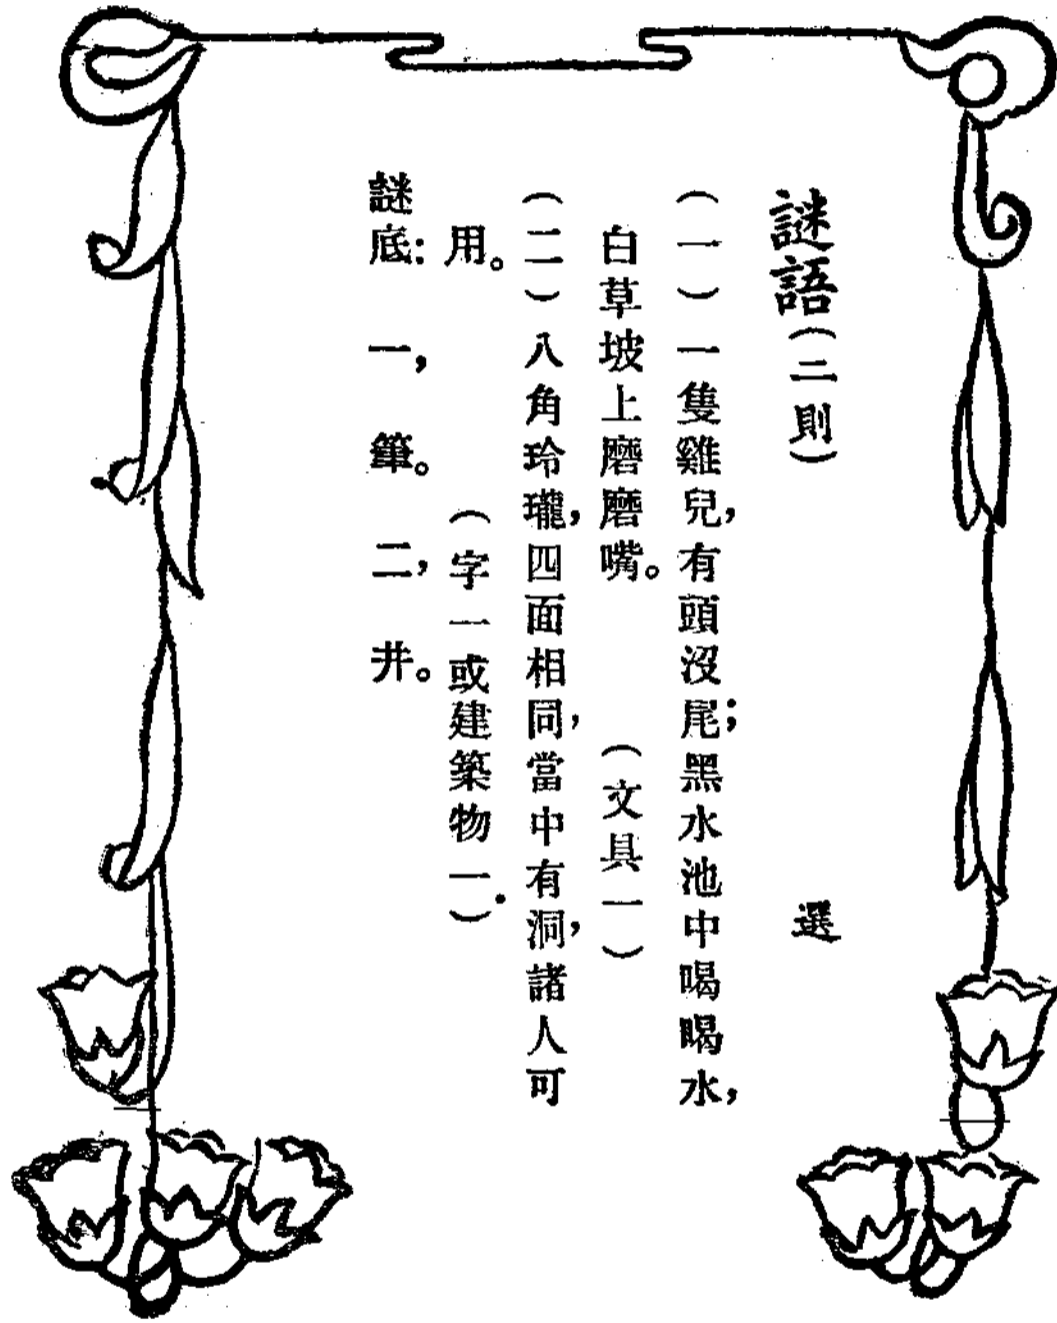 謎語(二則) 選
(一)一隻雞兒,有頭沒尾;黑水池中喝喝水,
白草坡上磨磨嘴。 (文具一)
(二)八角玲瓏,四面相同,當中有洞,諸人可
用。 (字一或建築物一)
謎底: 一,筆。 二,井。